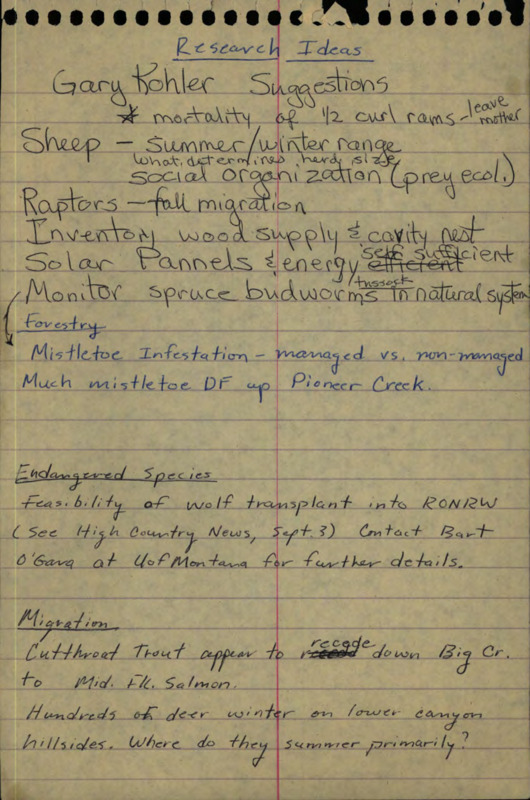 Research Ideas
Gary Kohler Suggestions
* mortality of 1/2 curl rams - leave mother
Sheep - summer/winter range
what determines herd size
social organization (prey ecol.)
Raptors - fall migration
Inventory wood supply & cavity nest
Solar Pannels & energy efficient self sufficient
Monitor spruce budworms/tussock in natural system
Forestry
Mistletoe Infestation - managed vs. non-managed
Much mistletoe DF up Pioneer Creek.
Endangered Species
Feasibility of wolf transplant into RONRW
(See High Country News, Sept. 3) Contact Bart
O'Gara at U of Montana for further details.
Migration
Cutthroat Trout appear to recede down Big Cr.
to Mid. Fk. Salmon.
Hundreds of deer winter on lower canyon
hillsides. Where do they summer primarily?